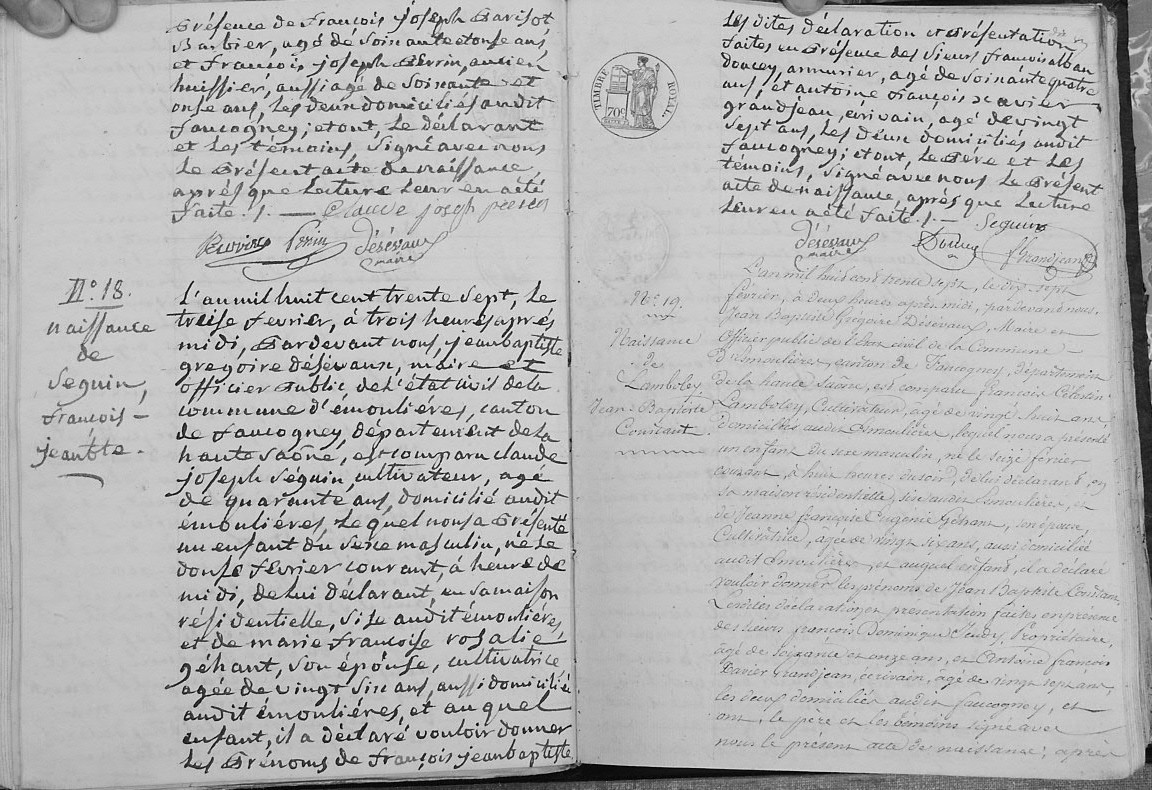 Présence de François joseph Parisot
Barbier, agé dé Soixante et onse ans,
et François joseph Perrin, ancien
huissier, aussi agé de Soixante et
onse ans, Les deux domiciliés audit
faucogney; et ont, Le déclarant
et Les témoins Signé avec nous
Le Présent acte de naissance,
après que Lecture Leur en a été
faite. /. — Claude joseph
Perrin désévaux
maire
N.° 18.
naissance
de
Seguin,
françois-
jean bte.
L'an mil huit cent trente Sept, Le
treise février, à trois heures après
midi, Pardevant nous, jean baptiste
gregoire désévaux, maire et
officier Public de L'état civil de la
commune d'émouliéres, canton
de faucogney, département de La
haute Saône, est comparu claude
joseph Séguin, cultivateur, agé
de quarante ans, domicilié audit
émouliéres, Le quel nous a Présenté
un enfant du Sexe masculin, né Le
douse février courant, à heure de
midi, de Lui déclarant, en Sa maison
résidentielle, Sise audit émouliéres,
et de marie françoise rosalie
géhant, Son épouse, cultivatrice
agée de vingt Six ans, aussi domiciliée
audit émouliéres, et au quel
enfant, il a déclaré vouloir donner
Les Prénoms de françois jean baptiste
Les dites déclaration et Présentation
faites en Présence des Sieurs françois alban
doucey, armurier, agé de Soixante quatre
ans, et antoine françois xavier
grandjean, écrivain, agé de vingt
Sept ans, Les deux domiciliés audit
faucogney; et ont, Le Père et Les
témoins, Signé avec nous Le Présent
acte de naissance, après que Lecture
Leur en a été faite. /. — Seguin
désévaux Doucey f Grandjean
maire
TIMBRE ROYAL
70 c
N.° 19.
Naissance
de
Lamboley
Jean-Baptiste
Constant
L'an mil huit cent trente sept, le dix sept
février, à deux heures après midi, pardevant nous
Jean Baptiste Grégoire Désévaux, Maire et
Officier public de l'état civil de la Commune —
d'Emoulières, canton de Faucogney, Département
de la haute Saône, est comparu François Célestin
Lamboley, Cultivateur, agé de vingt huit ans,
domicilié audit Emoulières, lequel nous a présenté
un enfant du sexe masculin, né le seize février
courant, à huit heures du soir, de lui déclarant, en
sa maison résidentielle, sise audit Emoulières, et
de Jeanne françoise Eugénie Géhant, son épouse,
Cultivatrice, agée de vingt six ans, aussi domiciliée
audit Emoulières et auquel enfant, il a déclaré
vouloir donner les prénoms de Jean Baptiste Constant,
Lesdites déclaration et présentation faites en présence
des sieurs françois Dominique Jeudy, Propriétaire,
agé de soixante et onze ans, et Antoine françois
Xavier Grandjean, écrivain, agé de vingt sept ans,
les deux domiciliés audit faucogney, et
ont, le père et les témoins signé avec
nous le présent acte de naissance, après